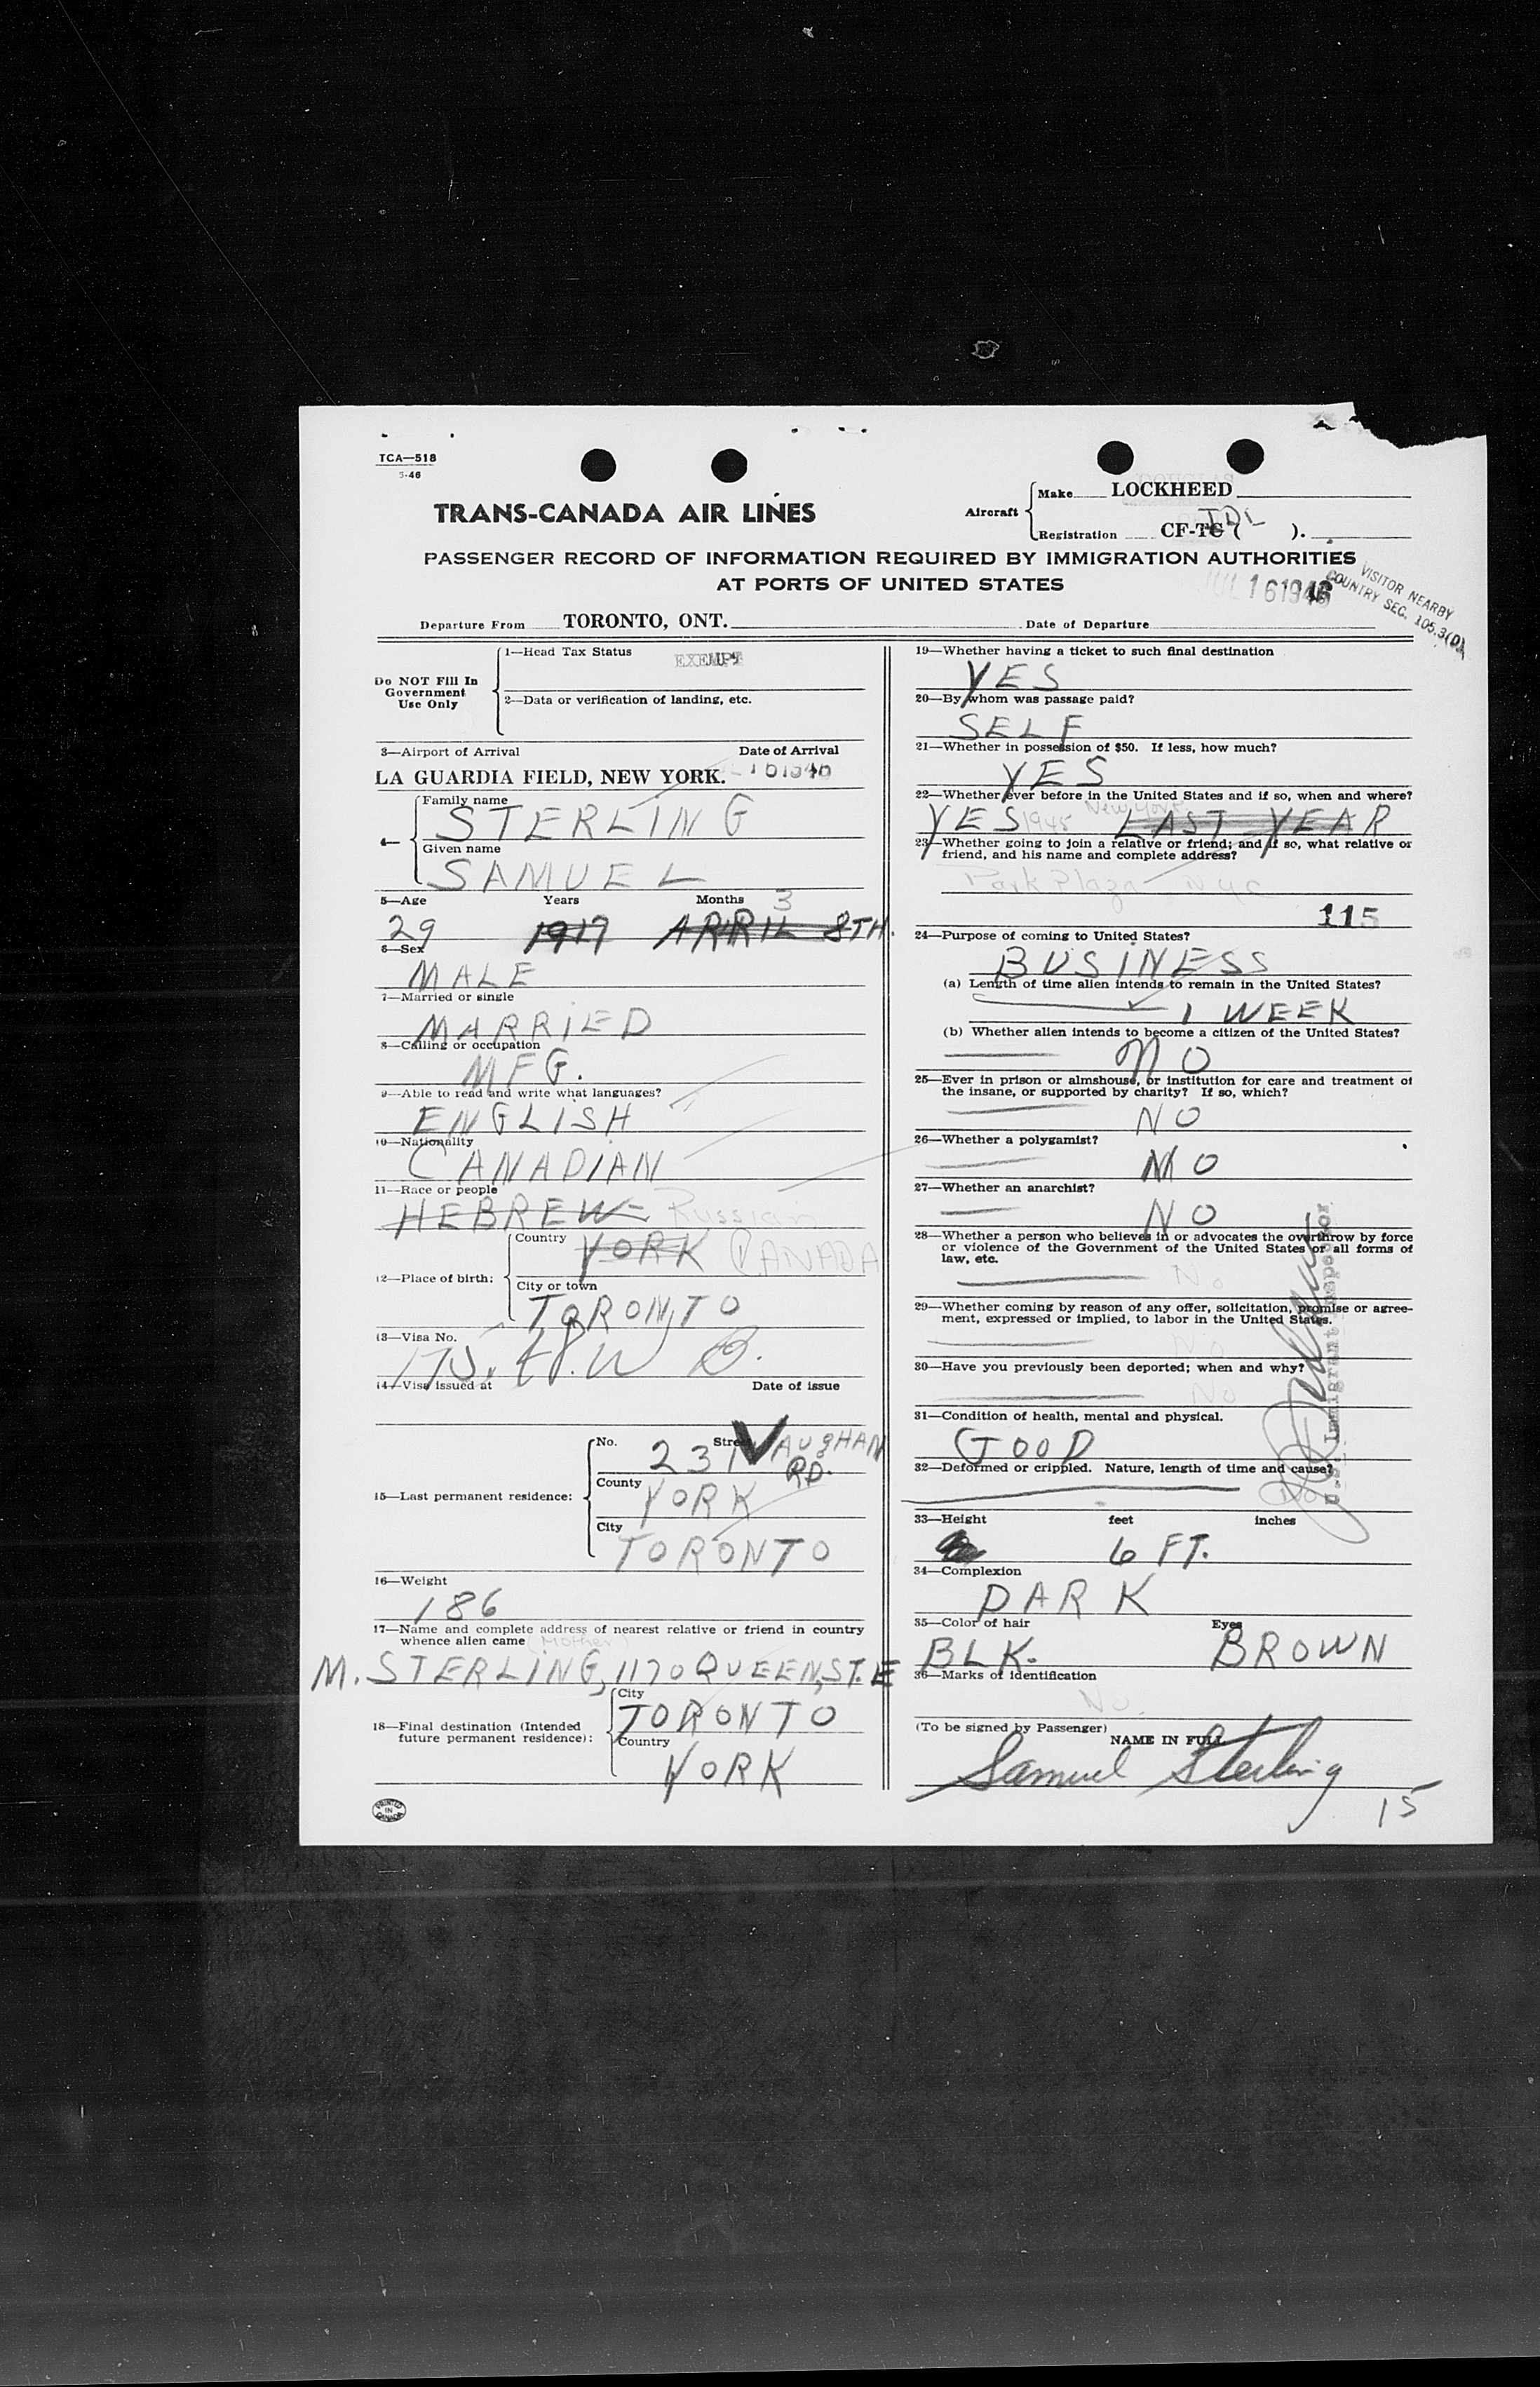 TCA—518
5-46
TRANS-CANADA AIR LINES
Aircraft
Make LOCKHEED
Registration CF-TG ( TDL ).
PASSENGER RECORD OF INFORMATION REQUIRED BY IMMIGRATION AUTHORITIES
AT PORTS OF UNITED STATES
JUL 16 1946
VISITOR NEARBY
COUNTRY SEC. 105.3(D)
Departure From TORONTO, ONT. Date of Departure
Do NOT Fill In
Government
Use Only
1—Head Tax Status EXEMPT
2—Data or verification of landing, etc.
3—Airport of Arrival Date of Arrival
LA GUARDIA FIELD, NEW YORK. 161946
4—
Family name
STERLING
Given name
SAMUEL
5—Age Years Months 3
29 1917 APRIL 8TH.
6—Sex
MALE
7—Married or single
MARRIED
8—Calling or occupation
MFG.
9—Able to read and write what languages?
ENGLISH
10—Nationality
CANADIAN
11—Race or people
HEBREW Russian
12—Place of birth:
Country
YORK CANADA
City or town
TORONTO
13—Visa No.
14—Visa issued at Date of issue
15—Last permanent residence:
No. Street
231 VAUGHAN
RD.
County
YORK
City
TORONTO
16—Weight
186
17—Name and complete address of nearest relative or friend in country
whence alien came (Mother)
M. STERLING, 1170 QUEEN, ST. E
18—Final destination (Intended
future permanent residence):
City
TORONTO
Country
YORK
PRINTED
IN
CANADA
19—Whether having a ticket to such final destination
YES
20—By whom was passage paid?
SELF
21—Whether in possession of $50. If less, how much?
YES
22—Whether ever before in the United States and if so, when and where?
New York
YES 1945 LAST YEAR
23—Whether going to join a relative or friend; and if so, what relative or
friend, and his name and complete address?
Park Plaza NYC
115
24—Purpose of coming to United States?
BUSINESS
(a) Length of time alien intends to remain in the United States?
1 WEEK
(b) Whether alien intends to become a citizen of the United States?
NO
25—Ever in prison or almshouse, or institution for care and treatment of
the insane, or supported by charity? If so, which?
NO
26—Whether a polygamist?
NO
27—Whether an anarchist?
NO
28—Whether a person who believes in or advocates the overthrow by force
or violence of the Government of the United States or all forms of
law, etc.
No
29—Whether coming by reason of any offer, solicitation, promise or agree-
ment, expressed or implied, to labor in the United States.
No
30—Have you previously been deported; when and why?
No
31—Condition of health, mental and physical.
GOOD
32—Deformed or crippled. Nature, length of time and cause?
No
U.S. Immigrant Inspector
33—Height feet inches
6 FT.
34—Complexion
DARK
35—Color of hair Eyes
BLK. BROWN
36—Marks of identification
No.
(To be signed by Passenger)
NAME IN FULL
Samuel Sterling
15